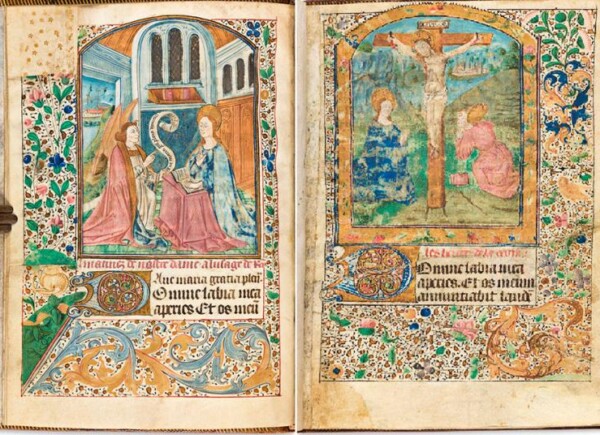 matines de nostre dame a lusage de
Aue maria gratia plei
Domine labia mea
aperies. Et os meū
Les heures de la croix
Domine labia mea
aperies. Et os meum
annunciabit laudē